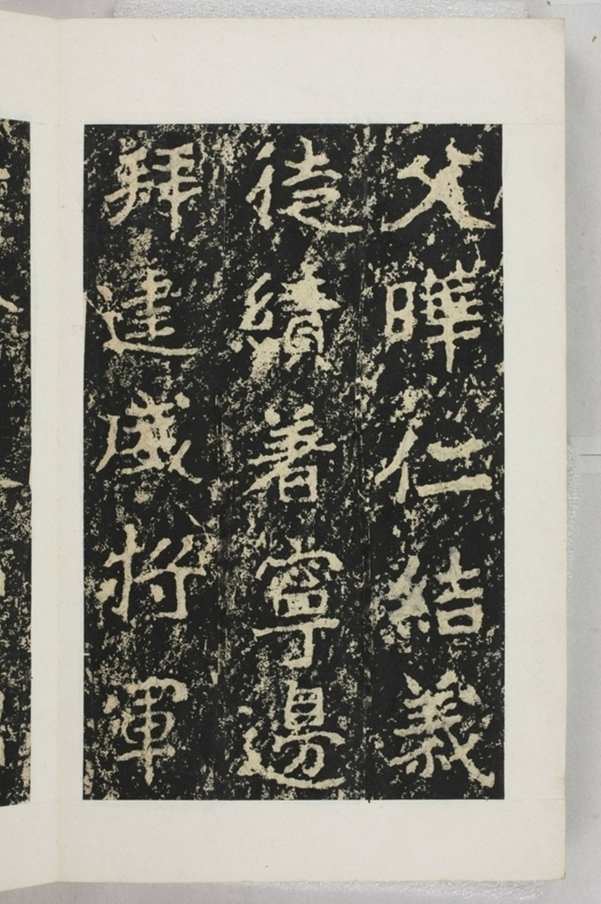 父曄仁結義
徒績著寧邊
拜建威將軍